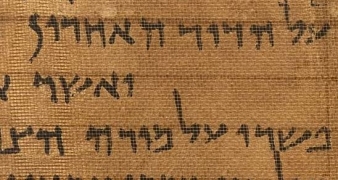 על הדור האחרון
ואשר
פשרו על מורה